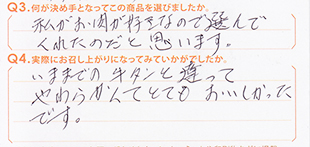 Q3.何が決め手となってこの商品を選びましたか。
私がお肉が好きなので選んで
くれたのだと思います。
Q4.実際にお召し上がりになってみていかがでしたか。
いままでの牛タンと違って
やわらかくてとてもおいしかった
です。